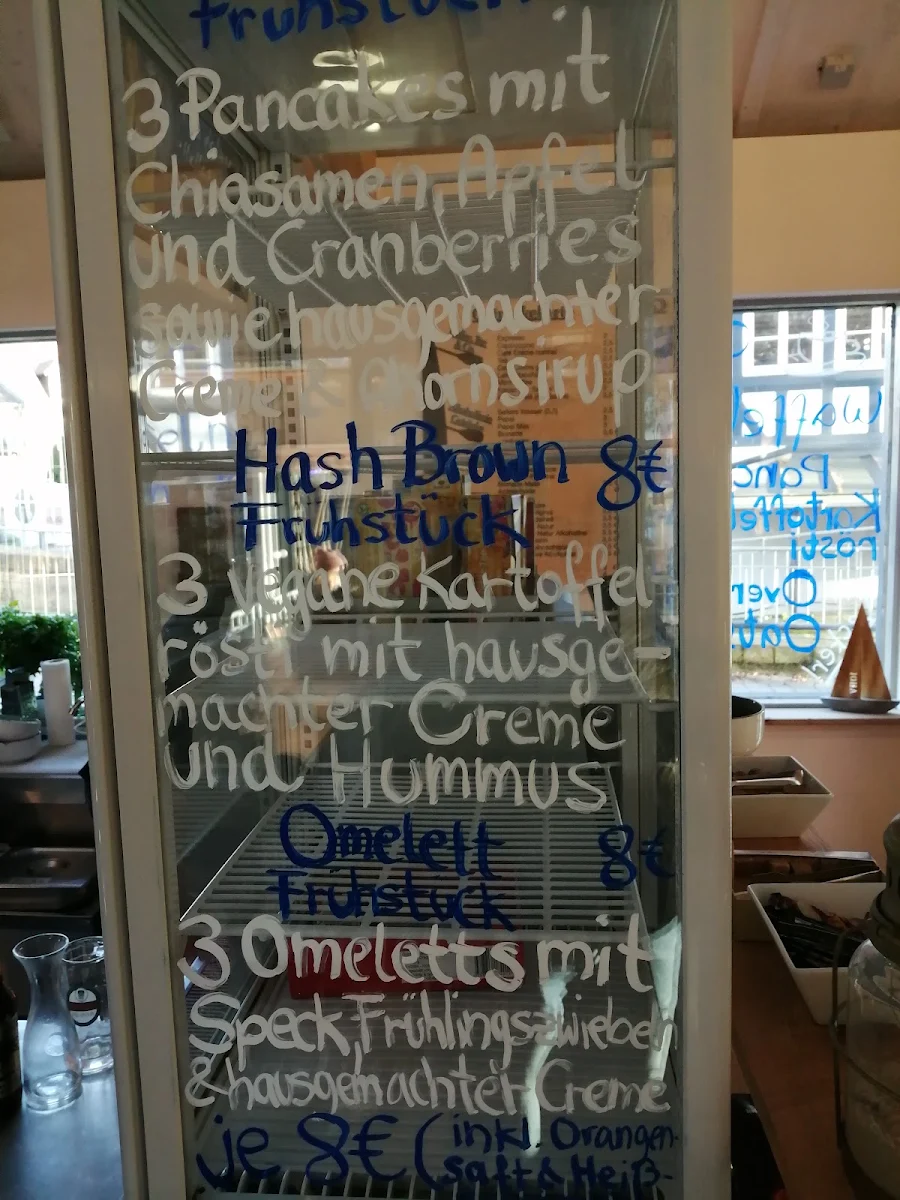 Frühstück
3 Pancakes mit
Chiasamen, Apfel
und Cranberries
sowie hausgemachter
Creme & Ahornsirup
Hash Brown 8€
Frühstück
3 vegane Kartoffel-
rösti mit hausge-
machter Creme
und Hummus
Omelett 8€
Frühstück
3 Omeletts mit
Speck, Frühlingszwiebeln
& hausgemachter Creme
je 8€ (inkl. Orangen-
saft & Heiß-
Waffel
Panc
Kartoffel
rösti
Over
Oats